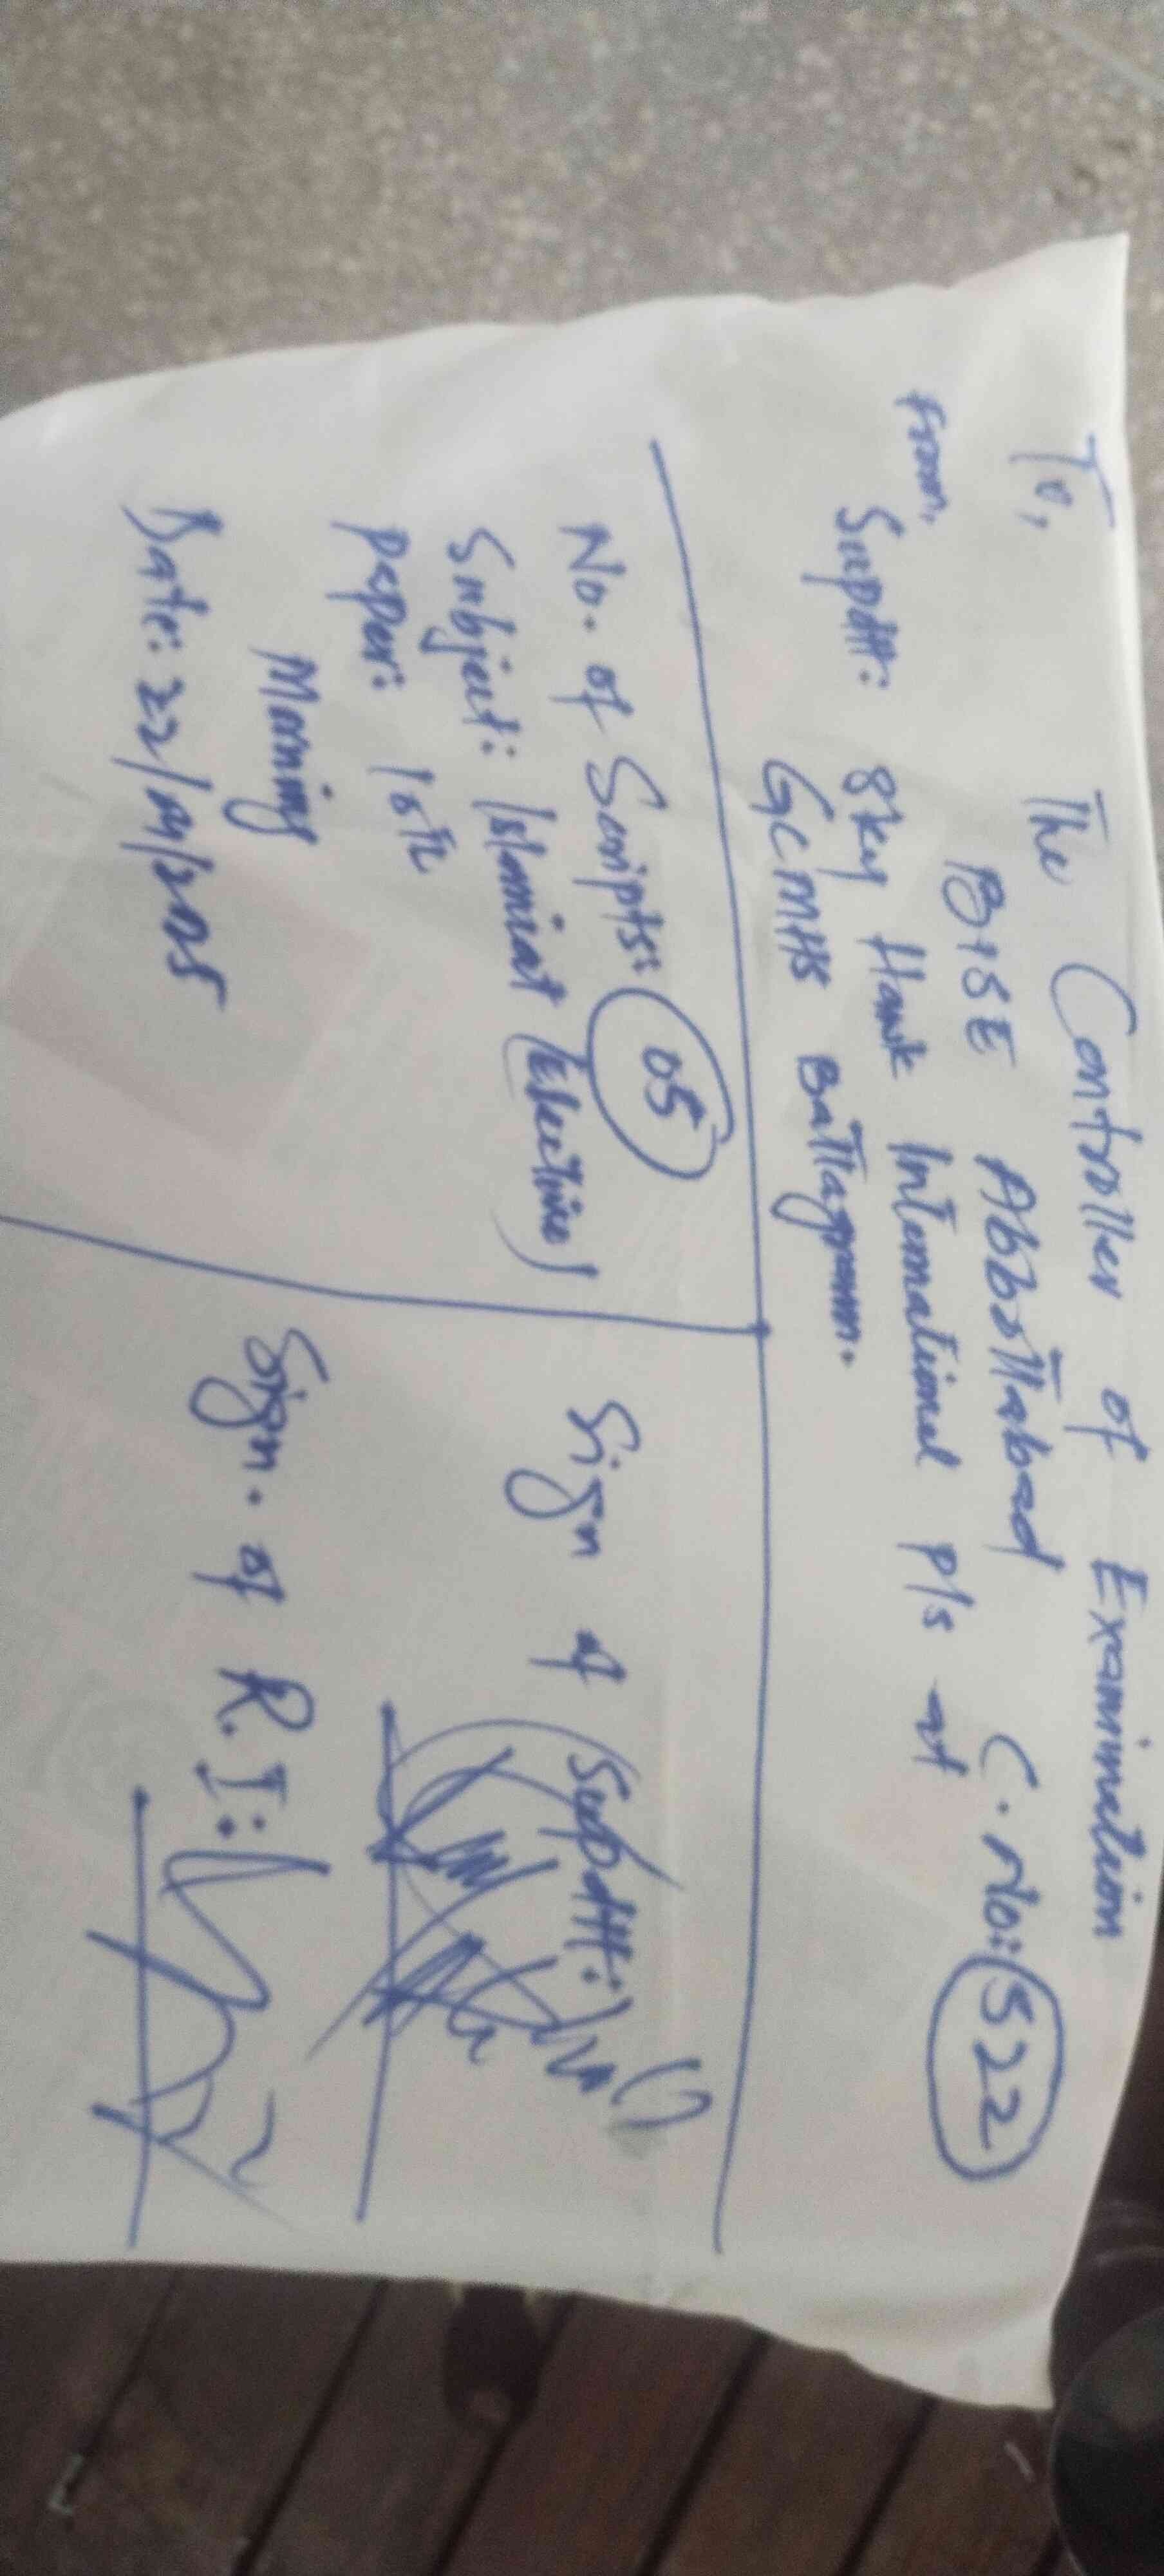 To,
The Controller of Examination
BISE Abbottabad C. No: 522
From,
Supdtt: Sky Hawk International P/S at
GCMHS Battagram.
No. of Scripts: 05
Subject: Islamiat (Elective)
Paper: 1st
Morning
Date: 22/
Sign of Supdtt:
Sign. of R.I: